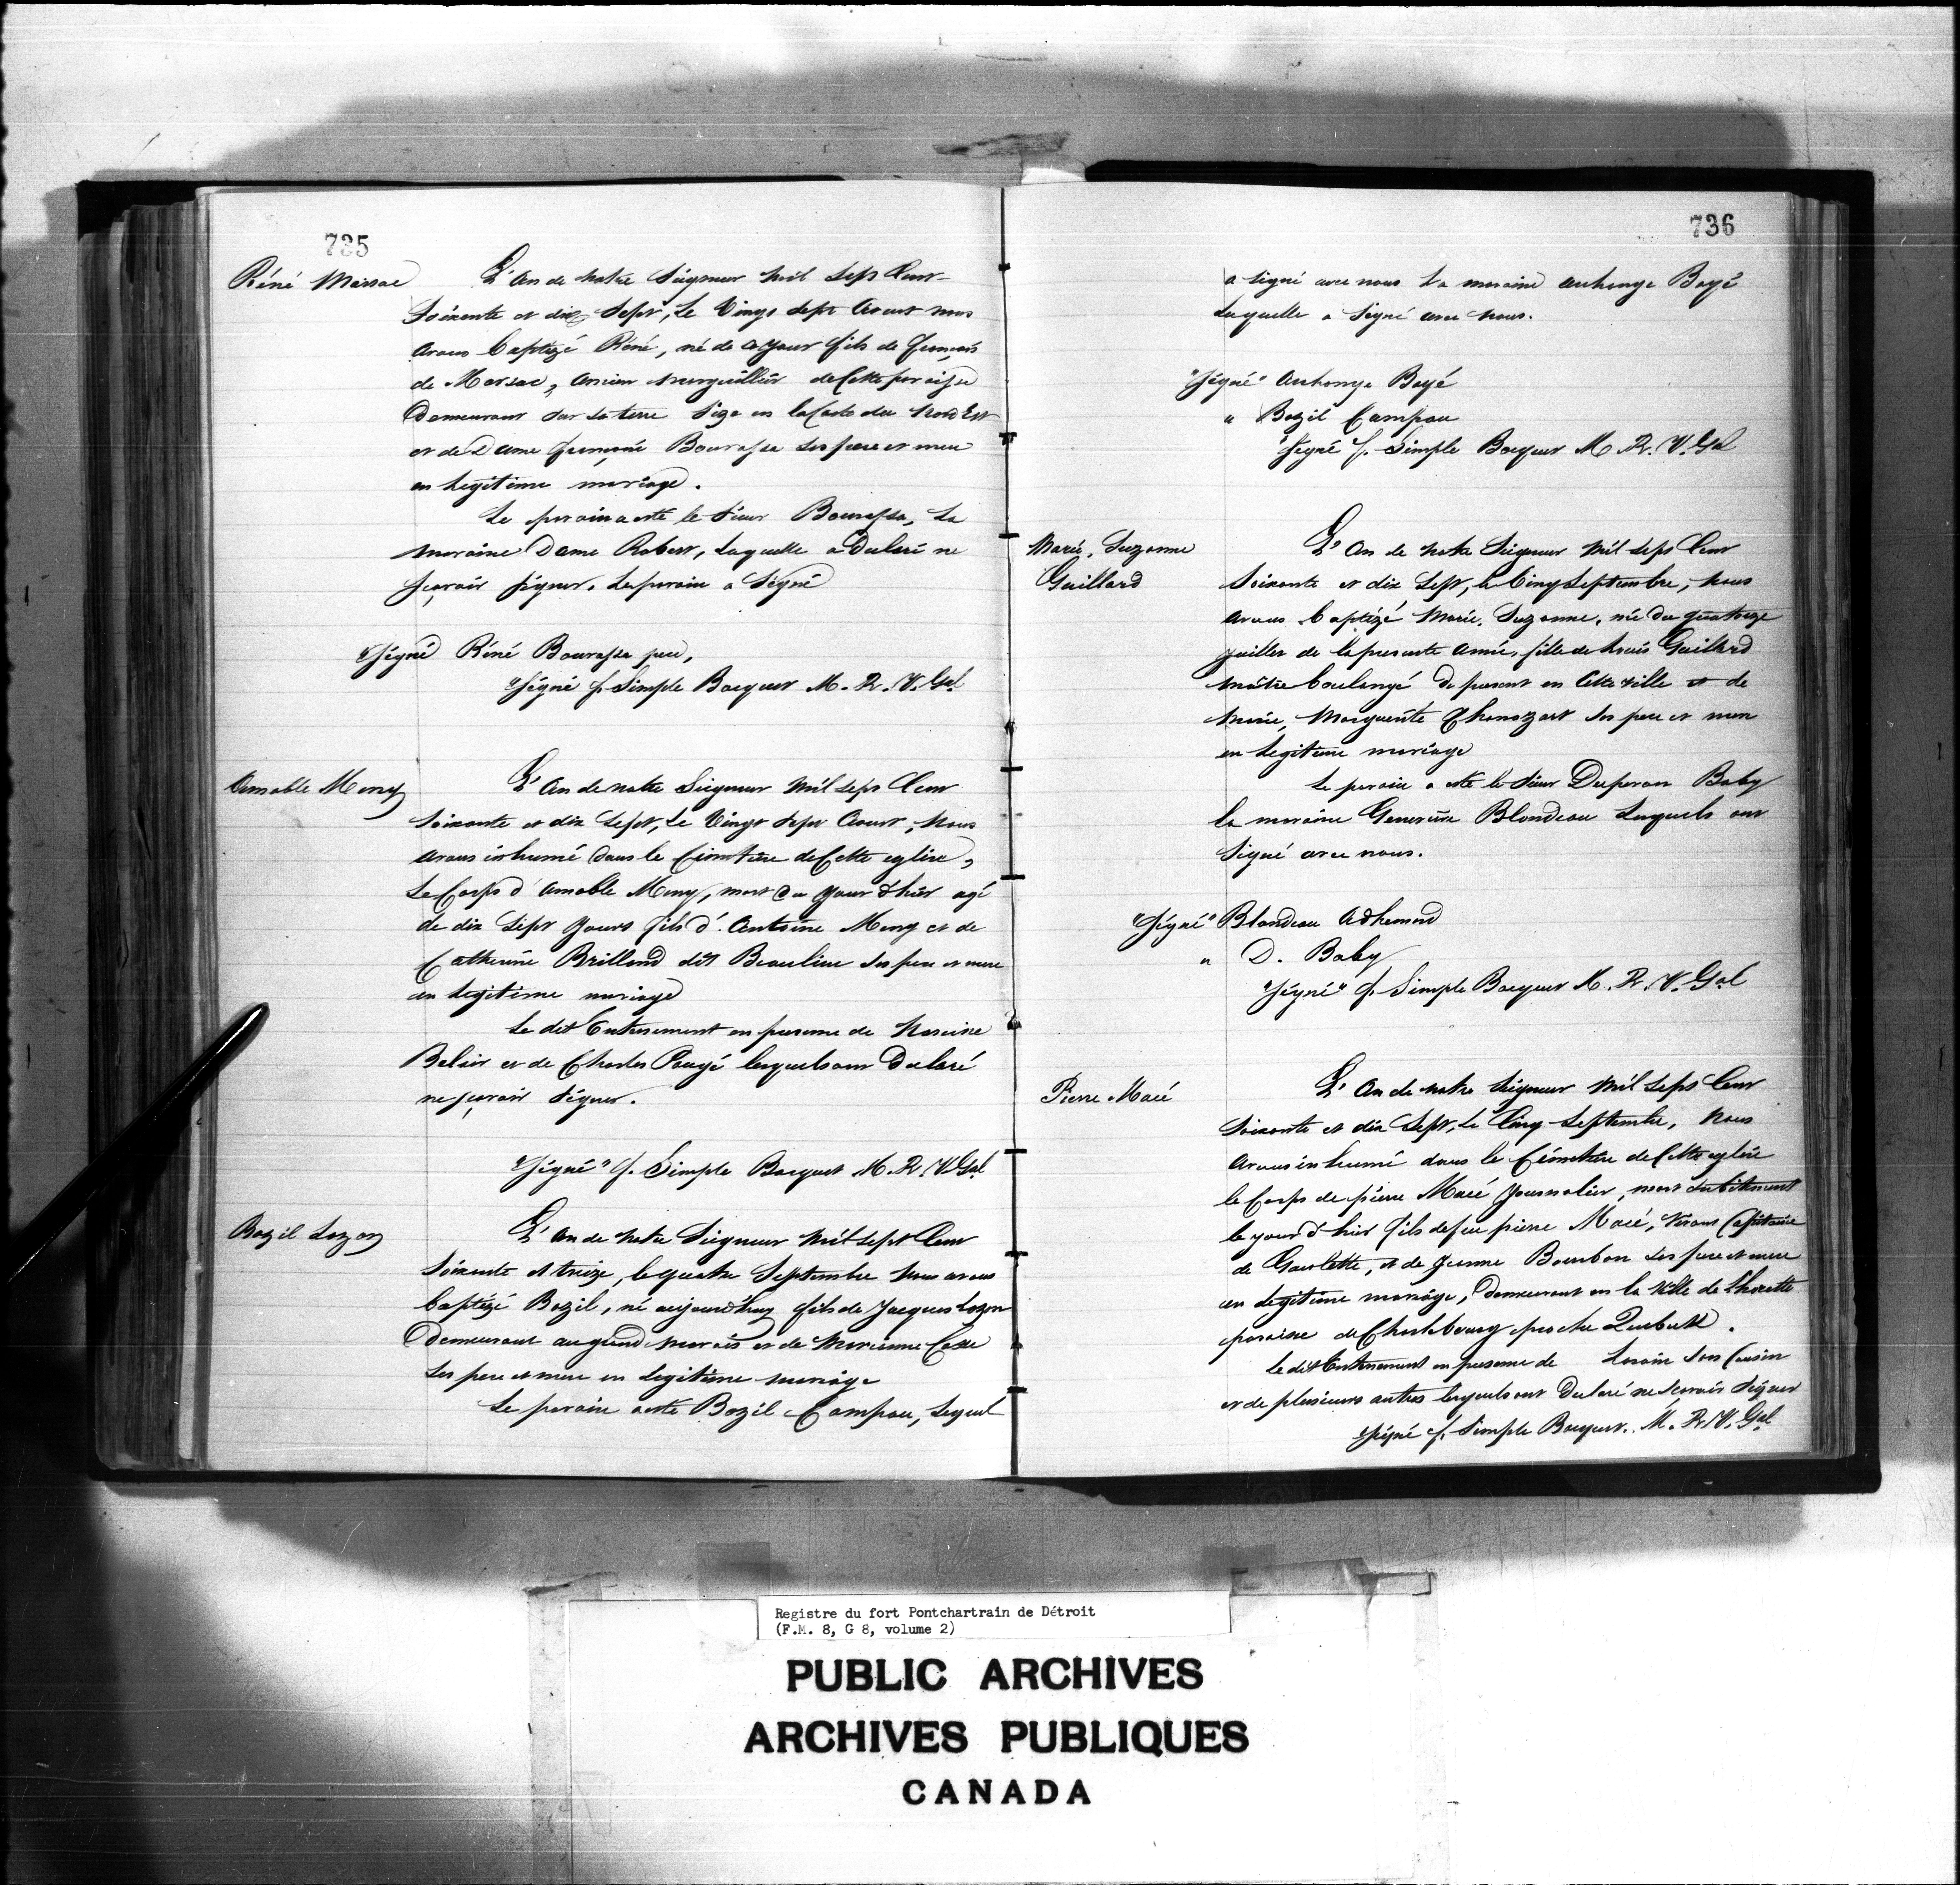 735
Réné Marsac
L'An de notre Seigneur Mil Sept Cent
Soixante et dix Sept, le Vingt Sept Aoust nous
avons baptizé Réné, né de ce jour fils de François
de Marsac, ancien Marguillier de Cette paroisse
Demeurant sur sa terre Size en la Coste du Nord Est
et de Dame Françoise Bourassa ses pere et mere
en legitime mariage.
Le parain a esté le Sieur Bourassa, la
maraine Dame Robert, laquelle a Declaré ne
sçavoir signer. Le parain a Signé
"Signé Réné Bourassa pere,
"Signé f. Simple Bocquet M. R. V. Gal
Amable Meny
L'An de notre Seigneur Mil Sept Cent
Soixante et dix Sept, Le Vingt Sept Aoust, Nous
avons inhumé dans le Cimetiere de Cette eglise,
Le Corps d'Amable Meny, mort du jour d'hier agé
de dix Sept jours fils d'Antoine Meny et de
Catherine Brilland dit Beaulieu ses pere et mere
en legitime mariage
Le dit Enterrement en presence de
Belair et de Charles lesquels ont Declaré
ne sçavoir Signer.
"Signé" f. Simple Bocquet M. R. V. Gal
Bazil Lozon
L'An de Notre Seigneur Mil Sept Cent
Soixante et treize, le quatre Septembre Nous avons
baptizé Bazil, né aujourd'huy fils de Jacques Lozon
Demeurant au grand Marais et de Marianne Cesse
Ses pere et mere en legitime mariage
Le parain a esté Bazil Campau, lequel
736
a signé avec nous La maraine Boyé
Laquelle a Signé avec Nous.
"Signé" Boyé
" Bazil Campau
"Signé f. Simple Bocquet M. R. V. Gal
Marie, Suzanne
Gaillard
L'An de Notre Seigneur Mil Sept Cent
Soixante et dix Sept, le Cinq Septembre, Nous
avons baptizé Marie, Suzanne, née du quatorze
juillet de la presente Année, fille de Louis Gaillard
maitre boulangé de present en Cette ville et de
Marie, Marguerite ses pere et mere
en legitime mariage
Le parain a esté le Sieur Duperon Baby
la maraine Genevieve Blondeau Lesquels ont
Signé avec nous.
"Signé" Blondeau Adhemard
" D. Baby
"Signé" f. Simple Bocquet M. R. V. Gal
Pierre Macé
L'An de notre Seigneur Mil Sept Cent
Soixante et dix Sept, Le Cinq Septembre, Nous
avons inhumé dans le Cimetiere de Cette eglise
le Corps de pierre Macé journalier, mort subitement
le jour d'hier fils de feu pierre Macé, Vivant Capitaine
de Goelette, et de Jeanne Bourbon ses pere et mere
en legitime mariage, Demeurant en la Ville de Lhorette
paroisse de Charlebourg proche Quebeck.
Le dit Enterrement en presence de Lorain Son Cousin
et de plusieurs autres lesquels ont Declaré ne sçavoir Signer
Signé f. Simple Bocquet. M. R. V. Gal
Registre du fort Pontchartrain de Détroit
(F.M. 8, G 8, volume 2)
PUBLIC ARCHIVES
ARCHIVES PUBLIQUES
CANADA